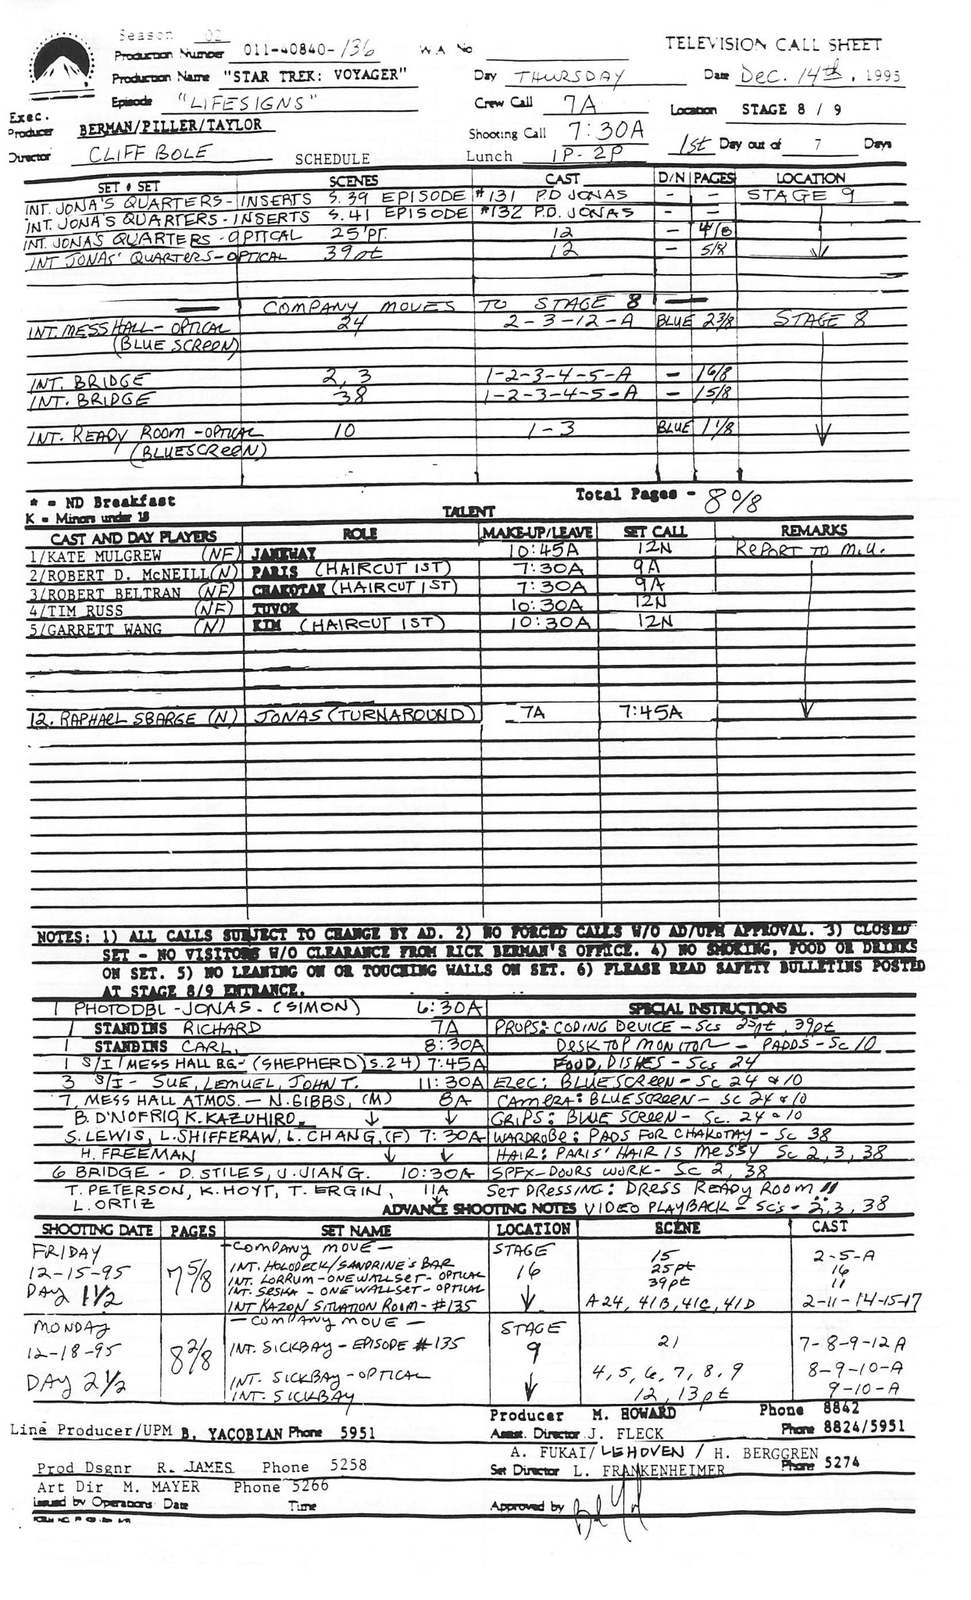 Season 02
Production Number 011-40840-136 W.A. No TELEVISION CALL SHEET
Production Name "STAR TREK: VOYAGER" Day THURSDAY Date Dec. 14th, 1995
Episode "LIFESIGNS" Crew Call 7A Location STAGE 8 / 9
Exec. Producer BERMAN/PILLER/TAYLOR Shooting Call 7:30A
Director CLIFF BOLE SCHEDULE Lunch 1P-2P 1st Day out of 7 Days
SET # SET SCENES CAST D/N PAGES LOCATION
INT. JONA'S QUARTERS-INSERTS S.39 EPISODE #131 P.D JONAS - - STAGE 9
INT. JONA'S QUARTERS-INSERTS S.41 EPISODE #132 P.D. JONAS - -
INT. JONAS QUARTERS-OPTICAL 25 PT. 12 - 4/8
INT JONAS' QUARTERS-OPTICAL 39pt 12 - 5/8
COMPANY MOVES TO STAGE 8
INT. MESS HALL-OPTICAL 24 2-3-12-A BLUE 2 3/8 STAGE 8
(BLUE SCREEN)
INT. BRIDGE 2, 3 1-2-3-4-5-A - 1 6/8
INT. BRIDGE 38 1-2-3-4-5-A - 1 5/8
INT. READY ROOM-OPTICAL 10 1-3 BLUE 1 1/8
(BLUESCREEN)
* = ND Breakfast Total Pages - 8 0/8
K = Minors under 18 TALENT
CAST AND DAY PLAYERS ROLE MAKE-UP/LEAVE SET CALL REMARKS
1/KATE MULGREW (NF) JANEWAY 10:45A 12N REPORT TO M.U.
2/ROBERT D. McNEILL (N) PARIS (HAIRCUT 1ST) 7:30A 9A
3/ROBERT BELTRAN (NF) CHAKOTAY (HAIRCUT 1ST) 7:30A 9A
4/TIM RUSS (NF) TUVOK 10:30A 12N
5/GARRETT WANG (N) KIM (HAIRCUT 1ST) 10:30A 12N
12. RAPHAEL SBARGE (N) JONAS (TURNAROUND) 7A 7:45A
NOTES: 1) ALL CALLS SUBJECT TO CHANGE BY AD. 2) NO FORCED CALLS W/O AD/UPM APPROVAL. 3) CLOSED
SET - NO VISITORS W/O CLEARANCE FROM RICK BERMAN'S OFFICE. 4) NO SMOKING, FOOD OR DRINKS
ON SET. 5) NO LEANING ON OR TOUCHING WALLS ON SET. 6) PLEASE READ SAFETY BULLETINS POSTED
AT STAGE 8/9 ENTRANCE.
1 PHOTODBL - JONAS - (SIMON) 6:30A SPECIAL INSTRUCTIONS
1 STANDINS RICHARD 7A PROPS: CODING DEVICE - Scs 25pt, 39pt
1 STANDINS CARL 8:30A DESKTOP MONITOR - PADDS - Sc 10
1 S/I/MESS HALL B.G. - (SHEPHERD) S.24) 7:45A FOOD, DISHES - Scs 24
3 S/I - SUE, LEMUEL, JOHN T. 11:30A ELEC: BLUESCREEN - SC 24 & 10
7, MESS HALL ATMOS. - N. GIBBS, (M) 8A CAMERA: BLUESCREEN - SC 24 & 10
B. D'NOFRIO, K. KAZUHIRO, GRIPS: BLUE SCREEN - Sc. 24 & 10
S. LEWIS, L. SHIFFERAW, L. CHANG, (F) 7:30A WARDROBE: PADS FOR CHAKOTAY - Sc 38
H. FREEMAN HAIR: PARIS' HAIR IS MESSY Sc 2, 3, 38
6 BRIDGE - D. STILES, J. JIANG. 10:30A SPFX - DOORS WORK - Sc 2, 38
T. PETERSON, K. HOYT, T. ERGIN, 11A SET DRESSING: DRESS READY ROOM!!
L. ORTIZ ADVANCE SHOOTING NOTES VIDEO PLAYBACK - SCS - 2, 3, 38
SHOOTING DATE PAGES SET NAME LOCATION SCENE CAST
FRIDAY 12-15-95 DAY 1 1/2 7 5/8 - COMPANY MOVE - STAGE 16
INT. HOLODECK/SANDRINE'S BAR 15 2-5-A
INT. LORRUM - ONE WALL SET - OPTICAL 25pt 16
INT. SESKA - ONE WALL SET - OPTICAL 39pt 11
INT KAZON SITUATION ROOM - #135 A24, 41B, 41C, 41D 2-11-14-15-17
MONDAY 12-18-95 DAY 2 1/2 8 2/8 - COMPANY MOVE - STAGE 9
INT. SICKBAY - EPISODE #135 21 7-8-9-12A
INT. SICKBAY - OPTICAL 4, 5, 6, 7, 8, 9 8-9-10-A
INT. SICKBAY 12, 13pt 9-10-A
Producer M. HOWARD Phone 8842
Line Producer/UPM B. YACOBIAN Phone 5951 Assist. Director J. FLECK Phone 8824/5951
A. FUKAI/LEHOVEN / H. BERGGREN
Prod Dsgnr R. JAMES Phone 5258 Set Director L. FRANKENHEIMER Phone 5274
Art Dir M. MAYER Phone 5266
Issued by Operations Date Time Approved by